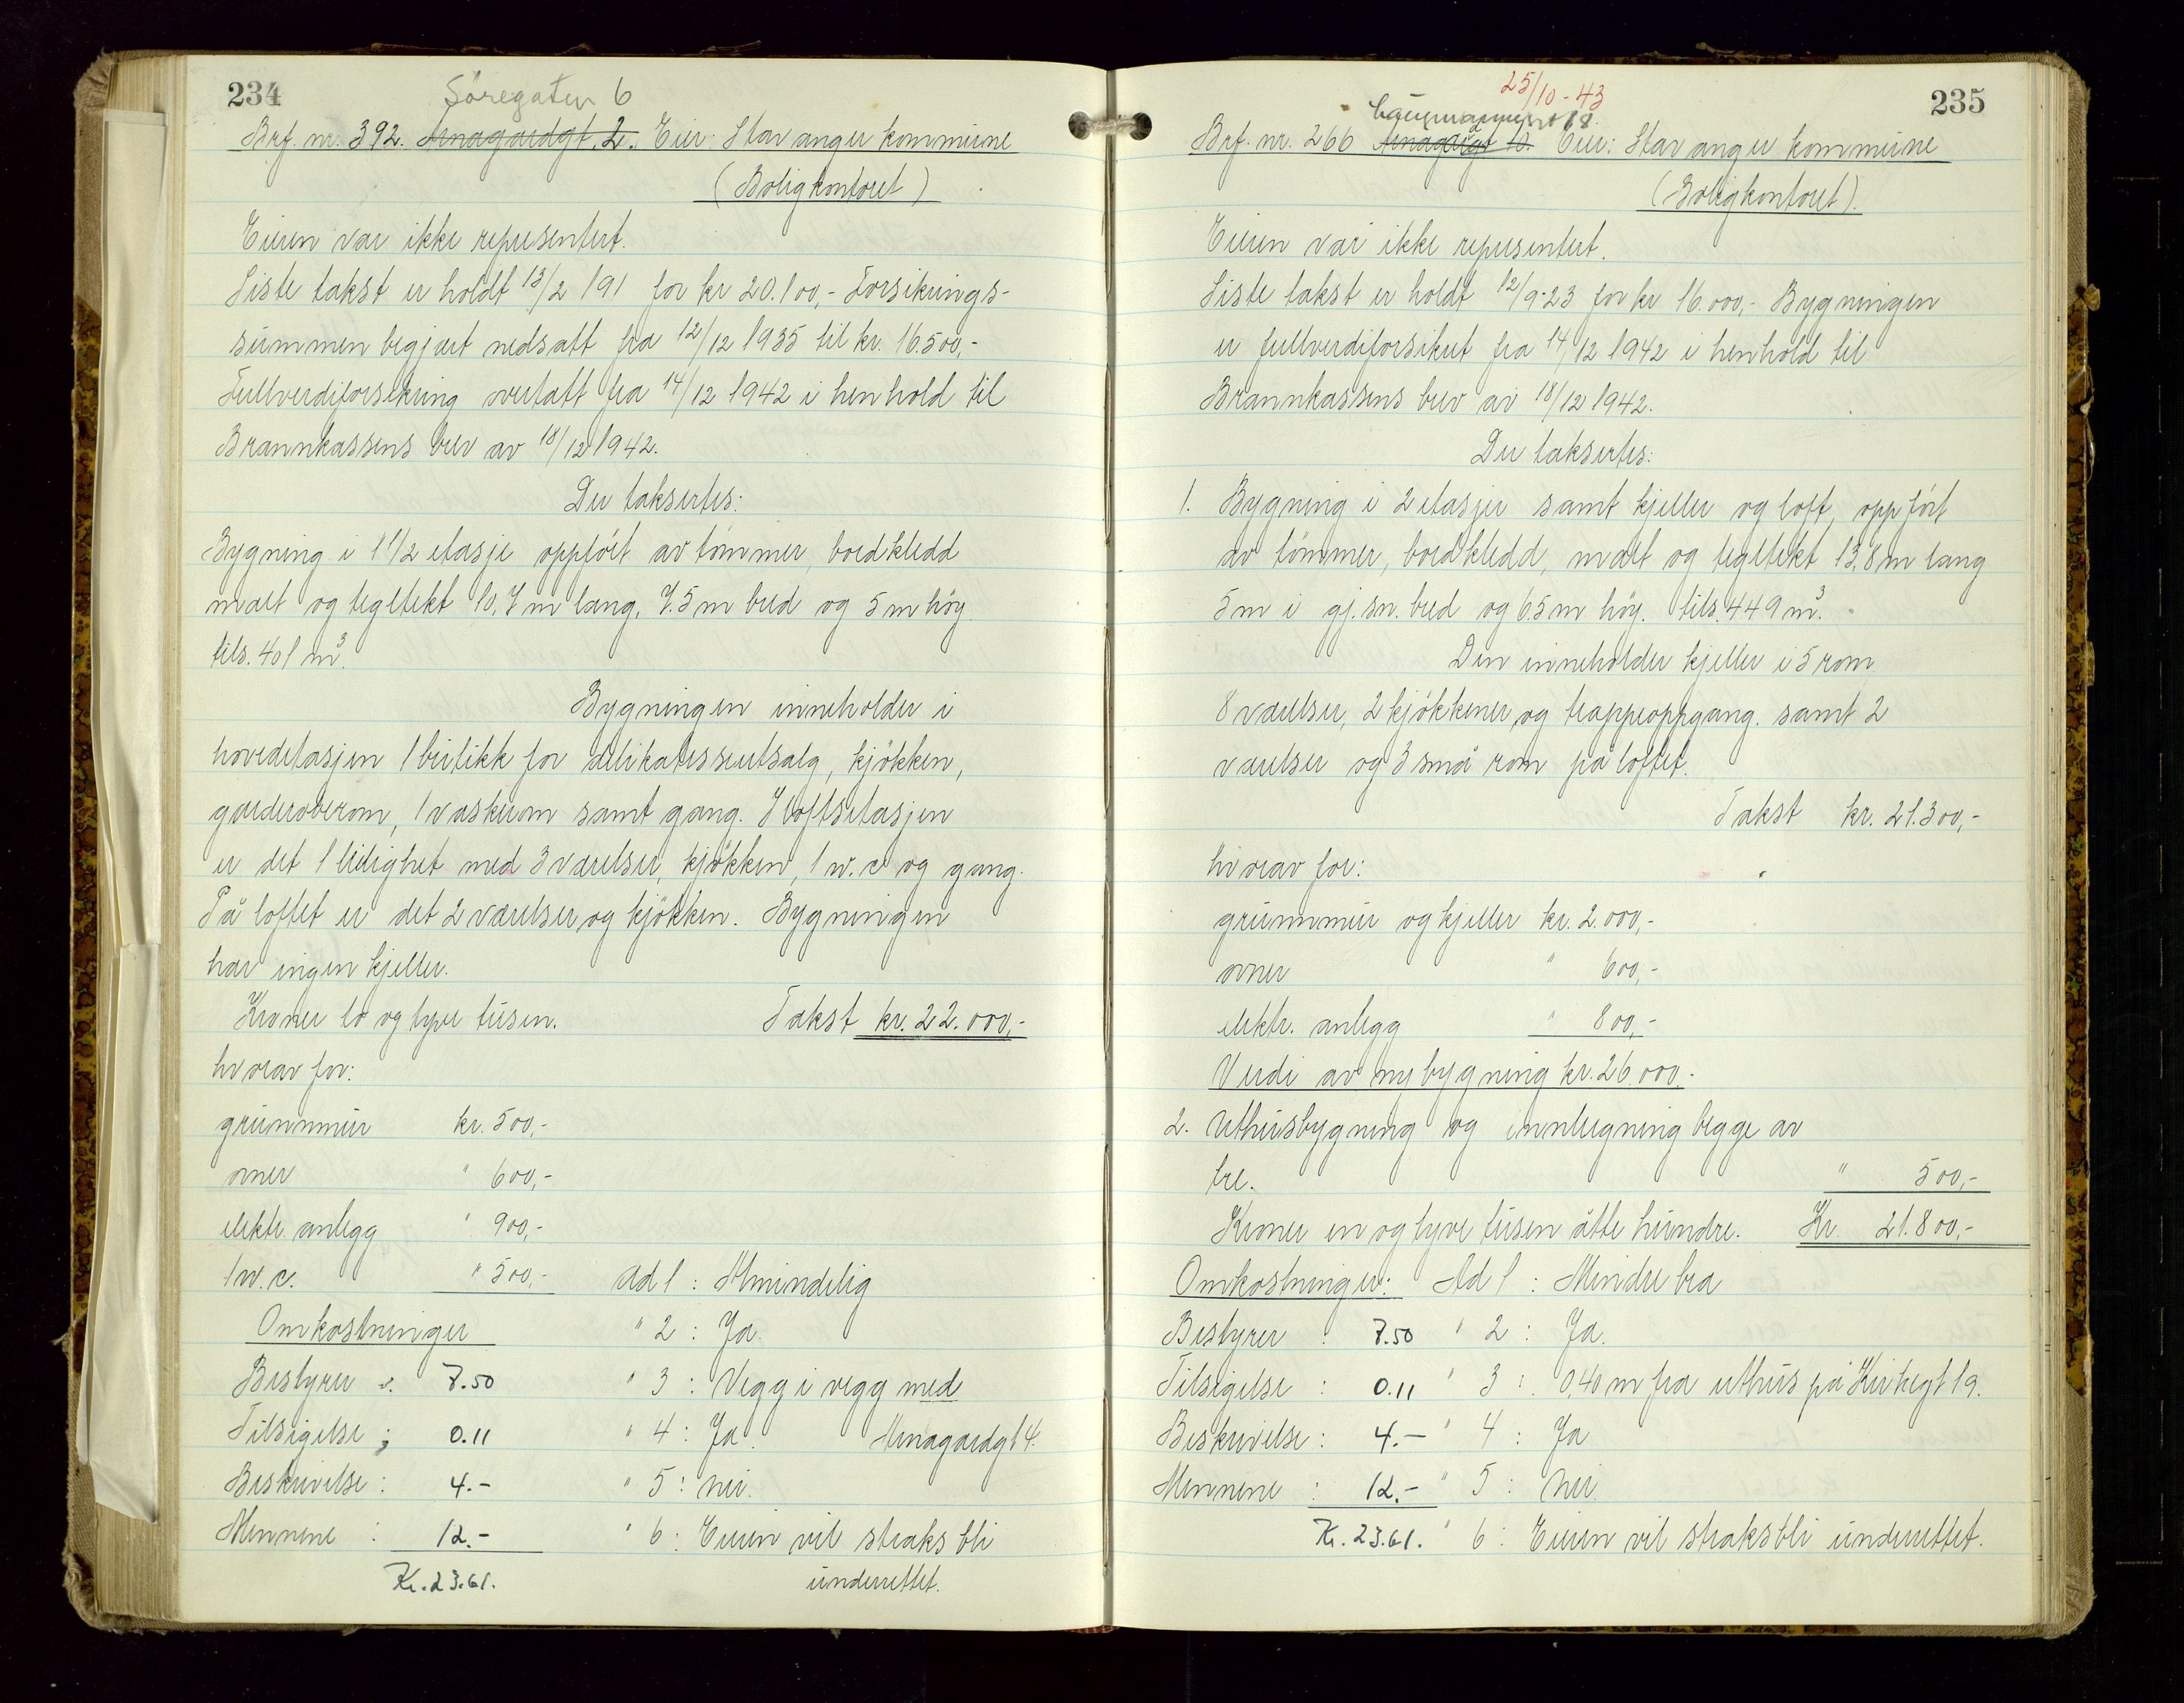 234
Söregaten 6
Brf. nr. 392. Arnagardgt. 2. Eier: Stavanger kommune
(Boligkontoret)
Eieren var ikke representert.
Siste takst er holdt 13/2 191 for kr 20.100,- Forsikrings-
summen begjært nedsatt fra 12/12 1935 til kr. 16.500,-
Fullverdiforsikring overtatt fra 14/12 1942 i henhold til
Brannkassens brev av 18/12 1942.
Der taksertes:
Bygning i 1 1/2 etasje oppført av tömmer, bordkledd
malt og tegltekt 10,7 m lang, 7.5 m bred og 5 m höy
tils. 401 m³.
Bygningen inneholder i
hovedetasjen 1 butikk for delikatesseutsalg, kjökken,
garderoberom, 1 vaskerom samt gang. I loftsetasjen
er det 1 leilighet med 3 værelser, kjökken, 1 w.c og gang.
På loftet er det 2 værelser og kjökken. Bygningen
har ingen kjeller.
Kroner to og tyve tusen. Takst kr. 22.000,-
hvorav for:
grunnmur kr. 500,-
ovner " 600,-
elektr. anlegg " 900,-
1 w.c. " 500,- Ad 1 : Almindelig
Omkostninger " 2 : Ja
Bestyrer : 7.50 " 3 : Vegg i vegg med
Tilsigelse : 0.11 " 4 : Ja. Arnagardgt 4.
Beskrivelse : 4.- " 5 : nei.
Mennene : 12.- " 6 : Eieren vil straks bli
Kr. 23.61. underrettet.
235
25/10-43
18.
Brf. nr. 266 Arnagdgt 10. Eier: Stavanger kommune
(Boligkontoret).
Eieren var ikke representert.
Siste takst er holdt 12/9-23 for kr 16.000,- Bygningen
er fullverdiforsikret fra 14/12 1942 i henhold til
Brannkassens brev av 18/12 1942.
Der taksertes:
1. Bygning i 2 etasjer samt kjeller og loft, oppfört
av tömmer, bordkledd, malt og tegltekt 13,8 m lang
5 m i gj.sn. bred og 6.5 m höy. tils. 449 m³.
Den inneholder kjeller i 5 rom
8 værelser, 2 kjökkener og trappeoppgang. samt 2
værelser og 3 små rom på loftet.
Takst kr. 21.300,-
hvorav for:
grunnmur og kjeller kr. 2.000,-
ovner " 600,-
elektr. anlegg " 800,-
Verdi av nybygning kr. 26 000.-
2. Uthusbygning og innhegning begge av
tre. " 500,-
Kroner en og tyve tusen åtte hundre. Kr. 21.800,-
Omkostninger: Ad 1 : Mindre bra
Bestyrer : 7.50 " 2 : Ja.
Tilsigelse : 0.11 " 3 : 0,40 m fra uthus på Kirkegt 19.
Beskrivelse : 4.- " 4 : Ja
Mennene : 12.- " 5 : Nei.
Kr. 23.61. " 6 : Eieren vil straks bli underrettet.